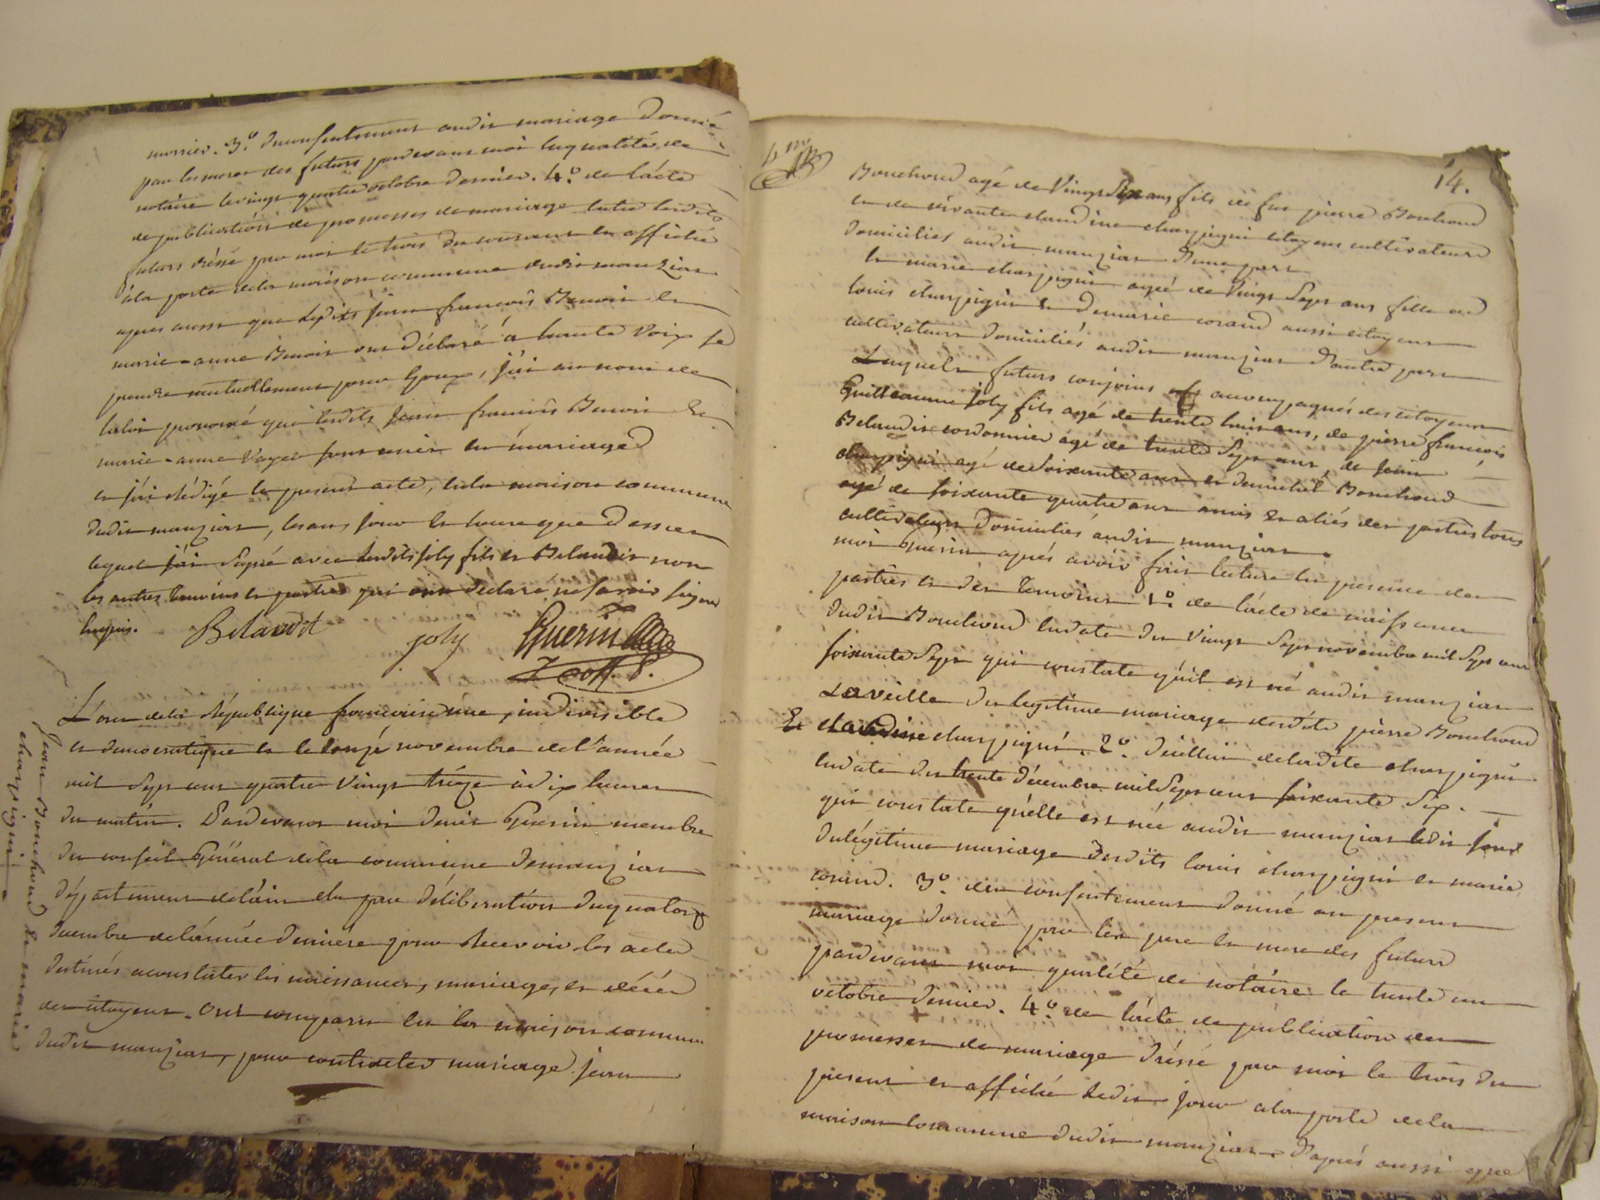 mariés. 3.º du consentement audit mariage donné
par les meres des futurs pardevant moi en qualité de
notaire le vingt quatre octobre dernier. 4.º de l'acte
de publication de promesses de mariage entre lesdits
futurs dréssé par moi le trois du courant et affiché
à la porte de la maison commune dudit manziat
apres aussi que lesdits jean françois Benoit et
marie-anne ont déclaré à haute voix se
prendre mutuellement pour Epoux, j'ai au nom de
la loi prononcé que lesdits jean françois Benoit Et
marie-anne sont unis en mariage
et j'ai rédigé le present acte, en la maison commune
dudit manziat, les an, jour et heure que dessus
lequel j'ai signé avec lesdits joly fils et Belaudit non
les autres temoins et parties qui ont déclaré ne savoir signer
Enquis. Belaudit joly Guerin
L'an de la République françoise une, indivisible
et democratique et le onze novembre de l'année
mil sept cent quatre vingt treize à dix heures
du matin. Pardevant moi denis Guerin membre
du conseil Général de la commune de manziat
département de l'ain élu par délibération du quatorze
decembre de l'année derniere pour recevoir les actes
destinés a constater les naissances, mariages, et décés
des citoyens. Ont comparu en la maison commune
dudit manziat, pour contracter mariage jean
jean Bouchoud et marie
charpigni
14.
Bouchoud agé de vingt six ans fils de feu pierre Bouchoud
et de vivante claudine charpigni citoyens cultivateurs
domiciliés audit manziat d'une part
Et marie charpigni agée de vingt sept ans fille de
louis charpigni & de marie corand aussi citoyens
cultivateurs domiciliés audit manziat d'autre part
Lesquels futurs conjoins accompagnés des citoyens
Guillaume joly fils agé de trente huit ans, de pierre françois
Belaudit cordonnier agé de trente sept ans, de jean
charpigni agé de soixante ans et de Bouchoud
agé de soixante quatre ans amis et aliés des parties tous
cultivateurs domiciliés audit manziat.
moi Guerin aprés avoir fait lecture en presence des
parties et des temoins 1.º de l'acte de naissance
dudit Bouchoud en date du vingt sept novembre mil sept cent
soixante sept qui constate qu'il est né audit manziat
La veille du legitime mariage desdits pierre Bouchoud
Et claudine charpigni. 2.º de celui de ladite charpigni
en date du trente décembre mil sept cent soixante six.
qui constate qu'elle est née audit manziat ledit jour
du légitime mariage desdits louis charpigni et marie
corand. 3.º du consentement donné au present
mariage donné par les pere et mere des futurs
pardevant moi qualité de notaire le trente un
octobre dernier. 4.º de l'acte de publication des
promesses de mariage dréssé par moi le trois du
present et affiché ledit jour a la porte de la
maison commune dudit manziat. D'aprés aussi que